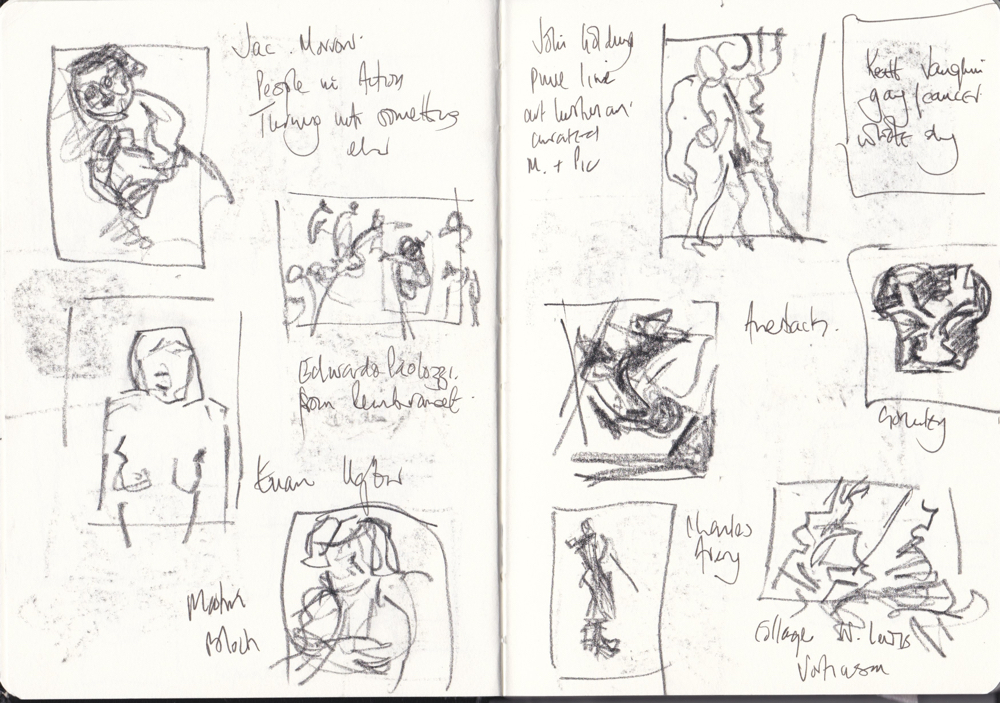 Jac. Morrow
People in Action
Turning into something
else
Edwardo Paolozzi.
from Rembrandt.
Euan Uglow
Martin
Bloch
John Golding
pure line
art historian
curated
M. + Pic
Keith Vaughn
gay / cancer
wrote
Auerbach.
Gormley
Charles
Avery
Collage W. Lewis
Vorticism